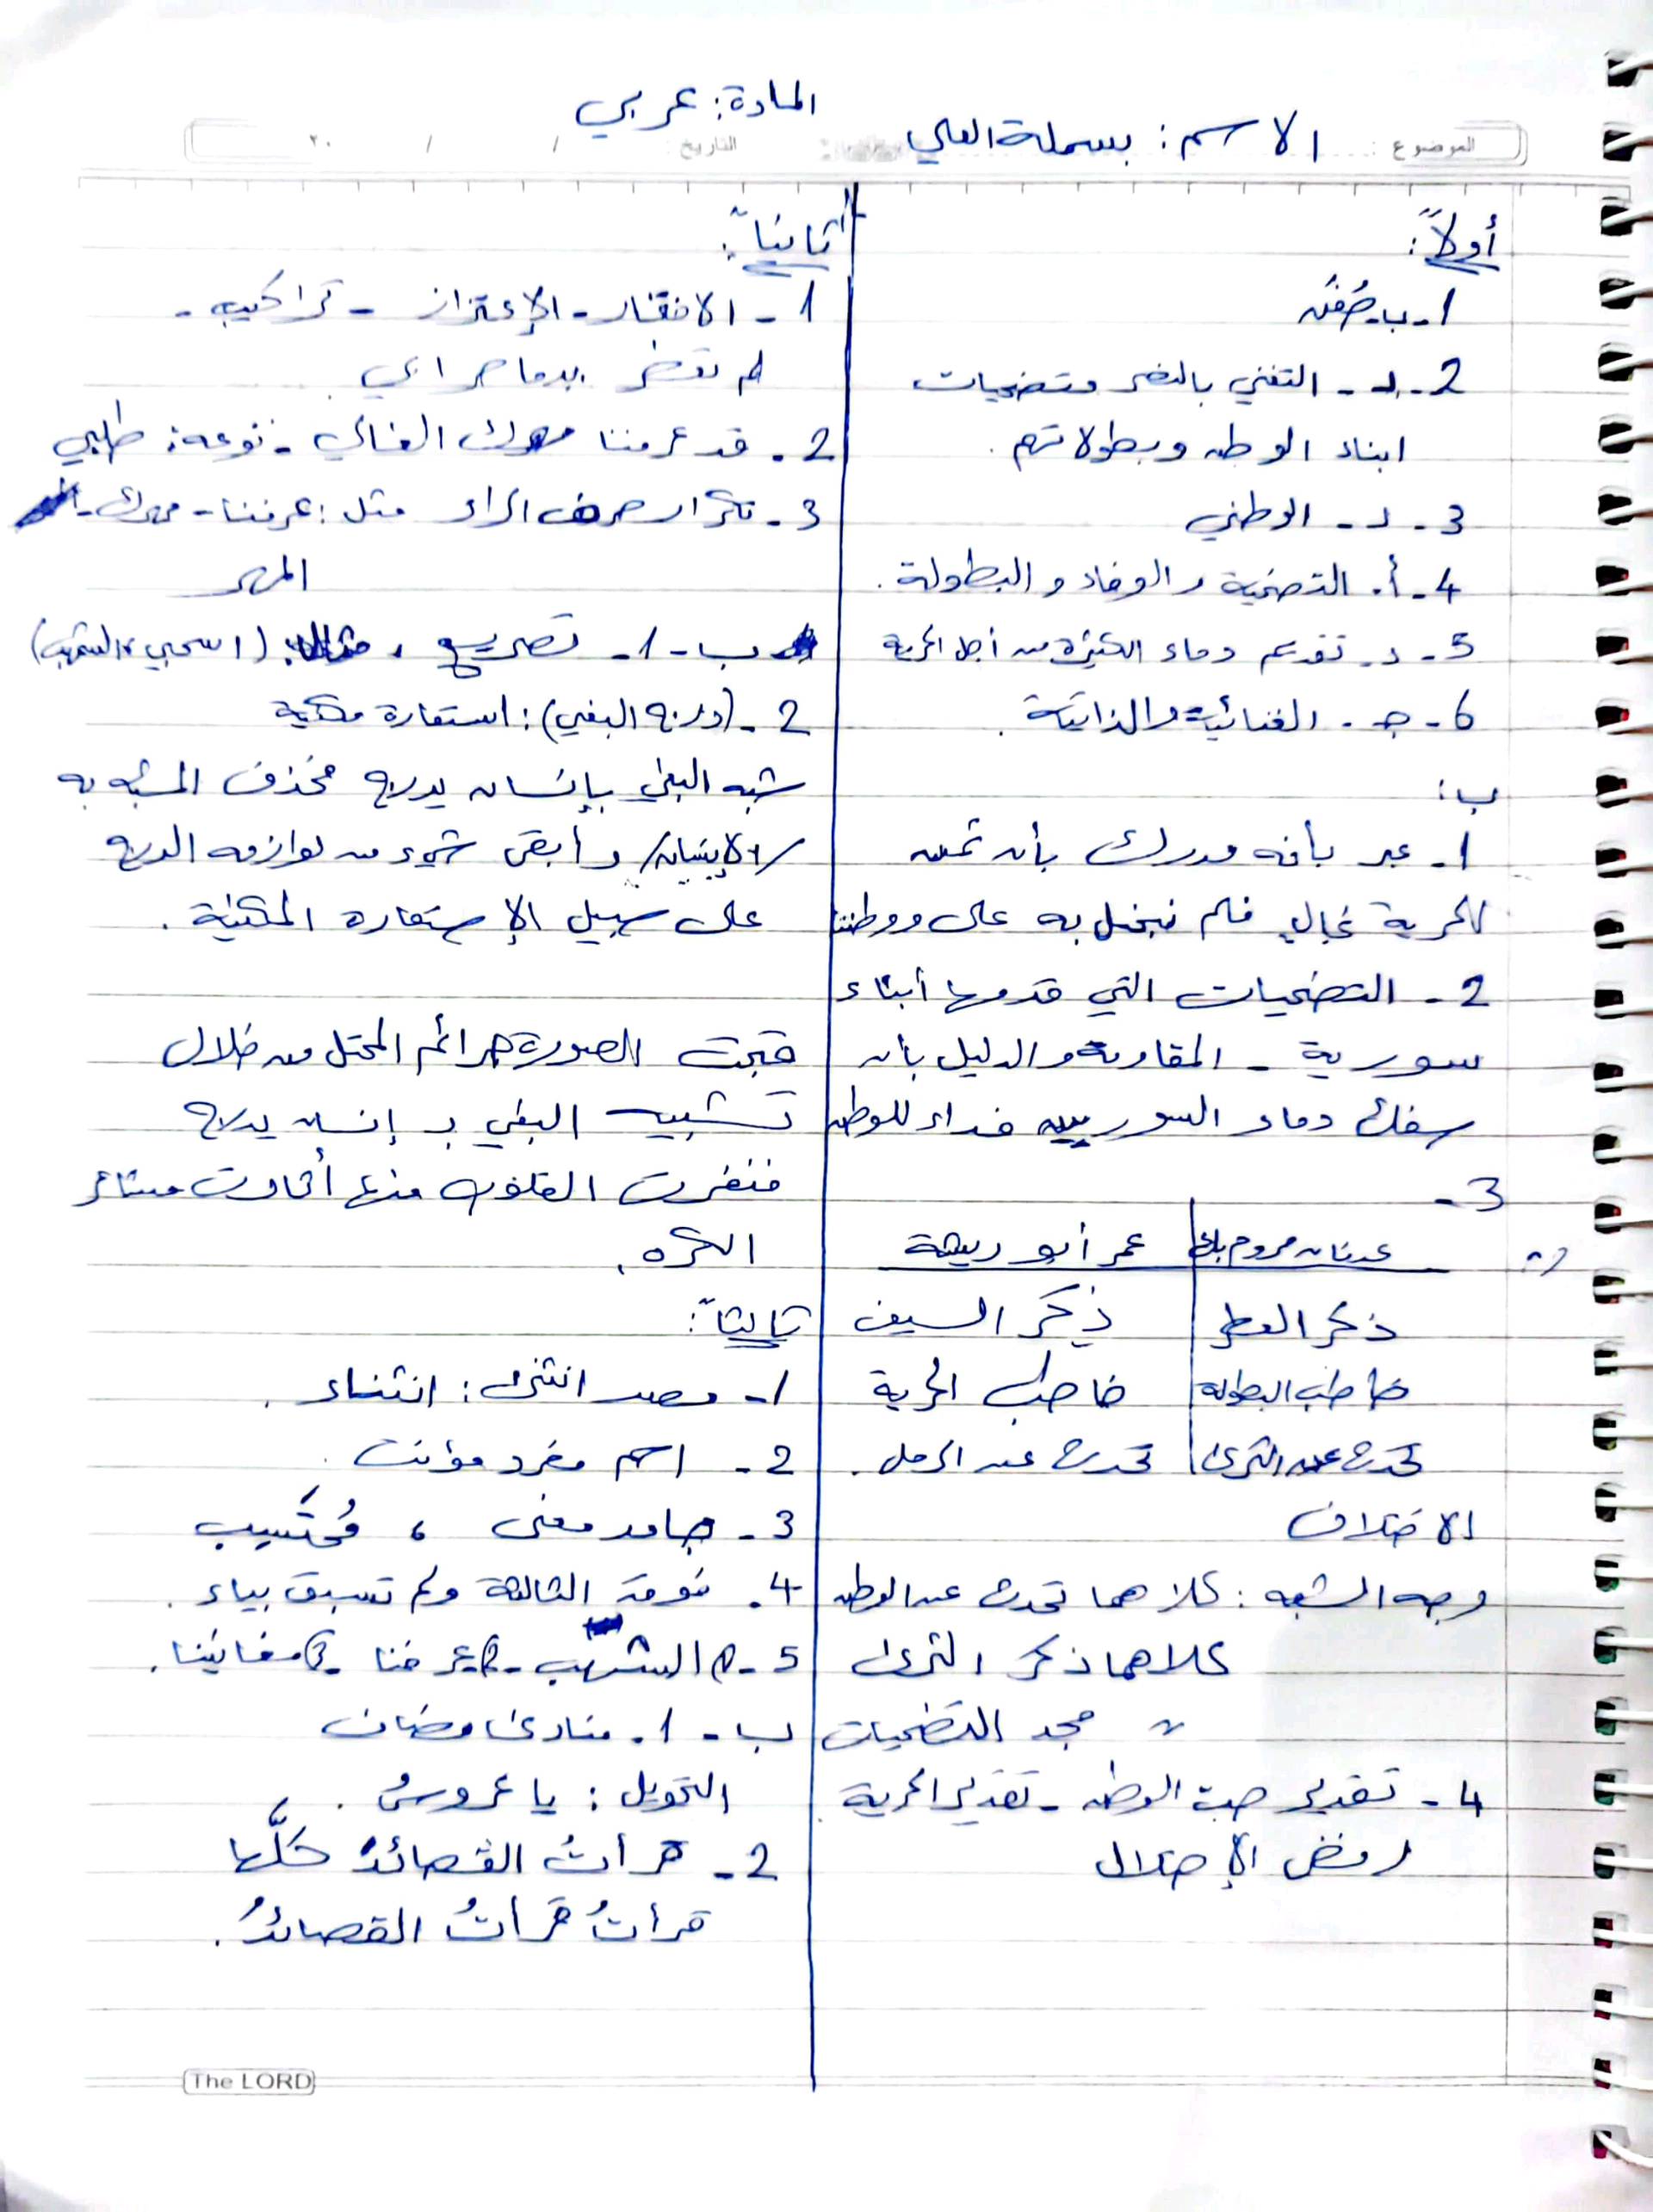 المادة: عربي
الاسم: بسملة العلي
الموضوع:
التاريخ: / / ٢٠
أولاً:
1- ب- صُفَّت
2- د- التغني بالنصر وتضحيات
ابناء الوطن وبطولاتهم.
3- د- الوطني
4- أ. التضحية والوفاء والبطولة.
5- د- تقديم دماء الكثيرة من أجل الحرية
6- ج. الغنائية والذاتية.
ب:
1- عبر بأنه مدرك بأن ثمن
الحرية غالٍ فلم نبخل به على ووطننا
2- التضحيات التي قدمها أبناء
سورية - المقاومة والدليل بأن
سفك دماء السوريين فداء للوطن
3-
عدنان مردم بك عمر أبو ريشة
ذكر العطر ذكر السيف
خاطب البطولة خاطب الحرية
تحدث عن الثرى تحدث عن الرمل.
الاختلاف
وجه الشبه: كلاهما تحدث عن الوطن
كلاهما ذكر الثرى
" مجد التضحيات
4- تقدير حب الوطن - تقدير الحرية
رفض الإحتلال
ثانياً:
1- الافتخار - الإعتزاز - تراكيب -
لم تقضر بدما حرا ابي
2- قد عرفنا مهرك الغالي - نوعه: طلبي
3- تكرار حرف الراء مثل: عرفنا - مهرك -
المهر
ب-1- تصريع، مثال: (اسحبي، الشهب)
2- (درج البغي): استعارة مكنية
شبه البغي بإنسان يدرج فحذف المشبه به
/الإنسان/ وأبقى شيء من لوازمه الدرج
على سبيل الإستعارة المكنية.
قبحت الصورة جرائم المحتل من خلال
تشبيه البغي بـ إنسان يدرج
فنفرت القلوب منها أثارت مشاعر
الكره.
ثالثاً:
1- مصدر انتنى: انتناء.
2- اسم مفرد مؤنث.
3- جامد معنى، مُكتَسِب
4- فوق الثالثة ولم تسبق بياء.
5- الشهب - عرفنا - مغانينا.
ب-1. منادى مضاف
التحويل: يا عروسُ.
2- قرأتُ القصائدَ كلَّها
قرأتُ قرأتُ القصائدَ.
The LORD